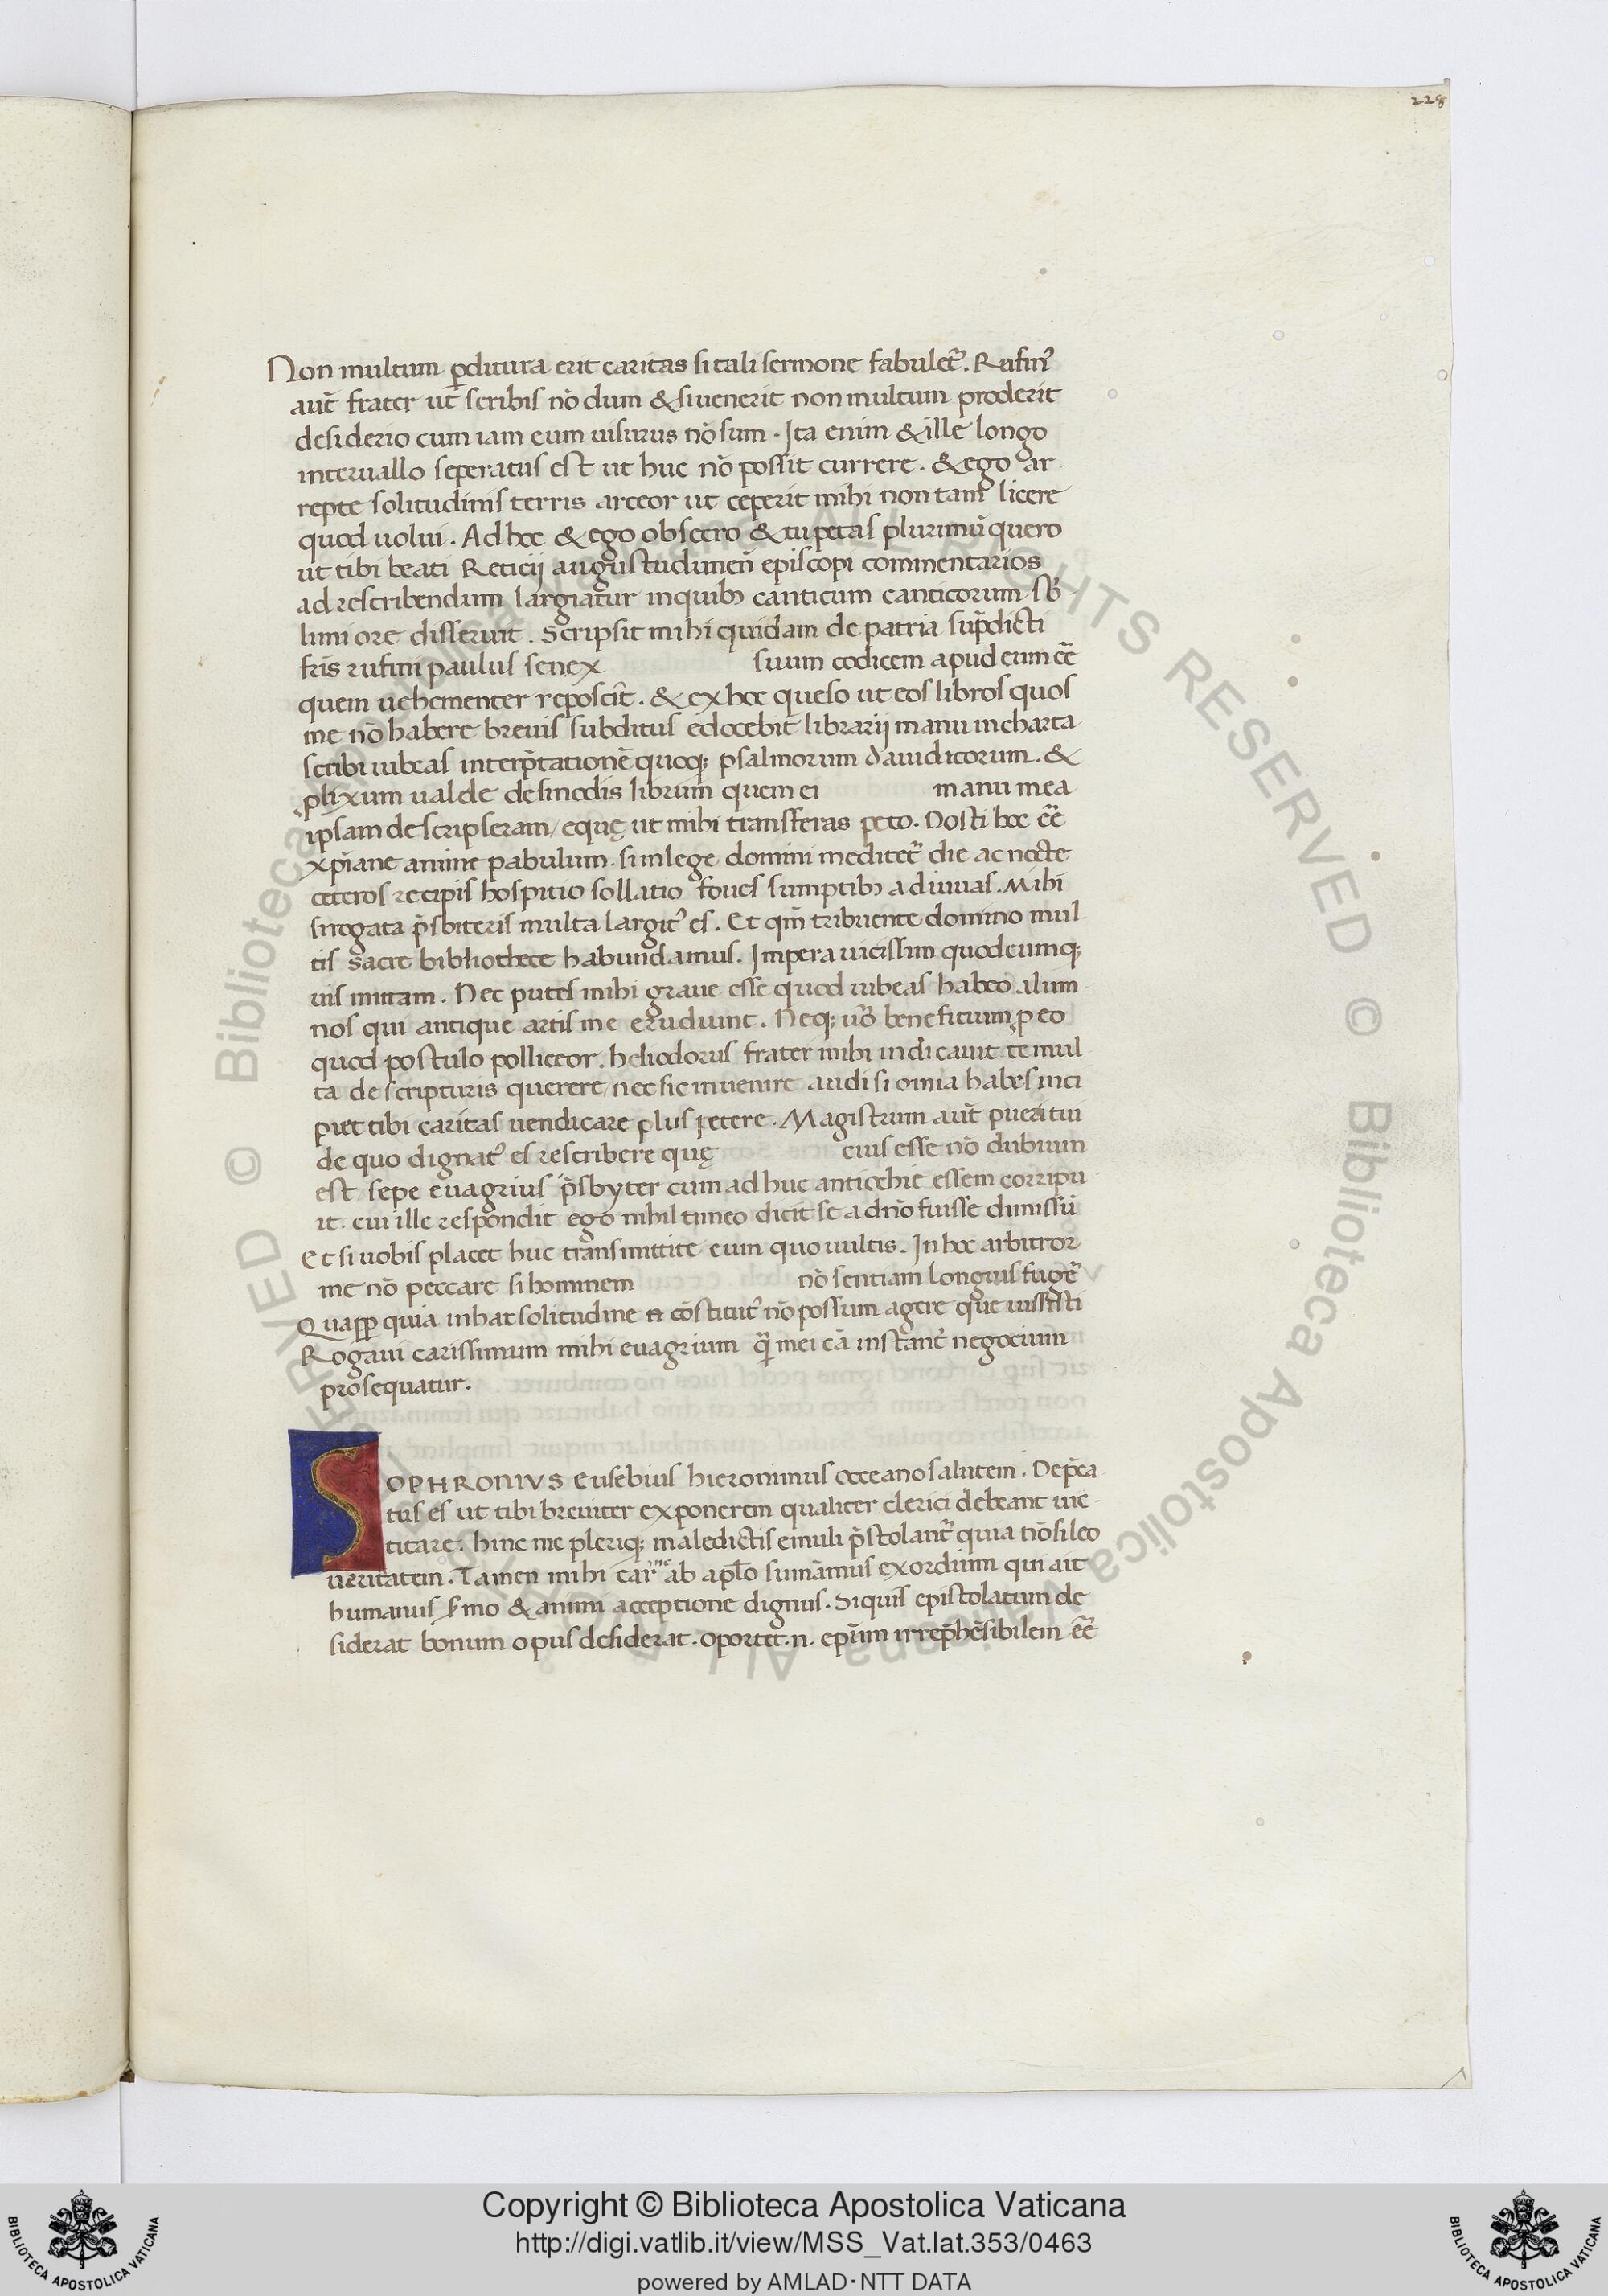 228
Non multum ꝑditura erit caritas si tali sermone fabulet᷑. Rufinꝰ
aut̄ frater ut scribis nō dum & si uenerit non multum proderit
desiderio cum iam eum uisurus nō sum. Ita enim & ille longo
interuallo seperatus est ut huc nō possit currere. & ego ar
repte solitudinis terris arceor ut ceperit mihi non tam licere
quod uolui. Ad hoc & ego obsecro & tu petas plurimū quero
ut tibi beati Reticij augustudunen̄ episcopi commentarios
ad rescribendum largiatur in quibꝫ canticum canticorum sb̄
limi ore disseruit. Scripsit mihi quidam de patria sup̄dicti
fr̄is rufini paulus senex suum codicem apud eum eē̄
quem uehementer reposcit. & ex hoc queso ut eos libros quos
me nō habere breuis subditus edocebit librarij manu in charta
scribi iubeas interp̄tationē quoqꝫ psalmorum dauiticorum. &
ꝓlixum ualde de sinodis librum quem ei manu mea
ipsam descripseram / equę ut mihi transferas peto. Nosti hoc eē̄
xp̄iane anime pabulum. si in lege domini meditet᷑ die ac nocte
ceteros recipis hospitio sollatio foues sumptibꝫ adiuuas. Mihi
si rogata p̄sbiteris multa largitꝰ es. Et qm̄ tribuente domino mul
tis sacre bibliothece habundamus. Impera uicissim quodcumqꝫ
uis mittam. Nec putes mihi graue esse quod iubeas habeo alum
nos qui antique artis me erudiunt. Neqꝫ uō beneficium ꝓ eo
quod postulo polliceor. heliodorus frater mihi indicauit te mul
ta de scripturis querere / nec sic inuenire audi si omia habes inci
piet tibi caritas uendicare plus petere. Magistrum aut̄ pueri tui
de quo dignatꝰ es rescribere quę eius esse nō dubium
est sepe euagrius p̄sbyter cum ad huc antiochie essem corripu
it. cui ille respondit ego nihil timeo dicit se a dn̄o fuisse dimissū
Et si uobis placet huc transmittite eum quo uultis. In hoc arbitror
me nō peccare si hominem nō sentiam longius fugē
Quapꝓ quia in hac solitudine cōstitutꝰ nō possum agere que iussisti
Rogaui carissimum mihi euagrium mei cā instant᷑ negocium
prosequatur.
SOPHRONIVS Eusebius hieronimus occeano salutem. Dep̄ca
tus es ut tibi breuiter exponerem qualiter clerici debeant uic
titare. hinc me pleriqꝫ maledictis emuli p̄stolant᷑ quia nō sileo
ueritatem. Tamen mihi car̄me ab apl̄o sumāmus exordium qui ait
humanus s̄mo & animi acceptione dignus. Si quis epistolatum de
siderat bonum opus desiderat. oportet .n. ep̄um irrep̄hēsibilem eē̄
Copyright © Biblioteca Apostolica Vaticana
http://digi.vatlib.it/view/MSS_Vat.lat.353/0463
powered by AMLAD·NTT DATA